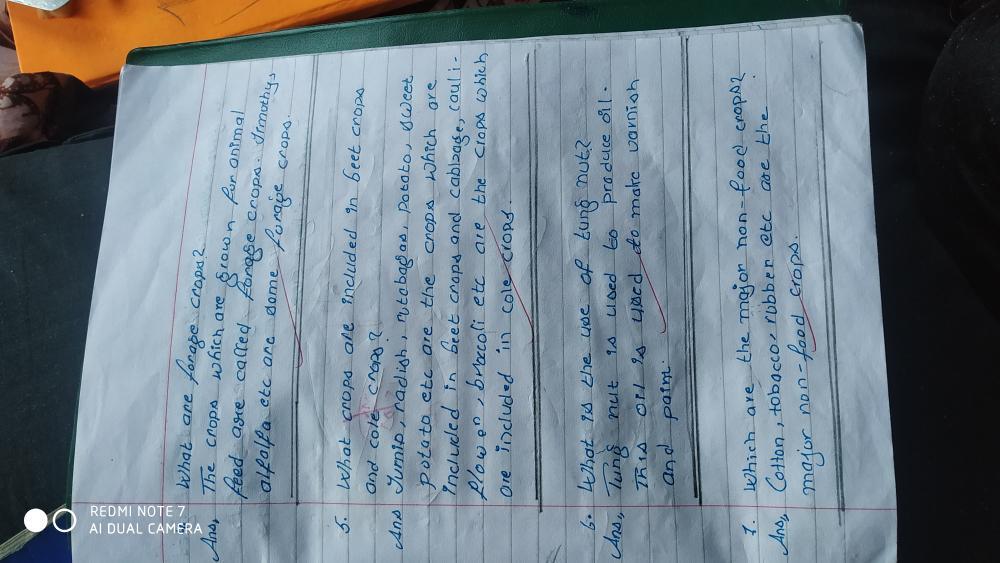 What are forage crops?
Ans, The crops which are grown for animal
feed agre called forage crops. Timothys
alfalfa etc are some forage crops.
5. What crops are included in beet crops
and cole crops?
Ans Turnip, radish, rutabagas, potato, sweet
potato etc are the crops which are
included in beet crops and cabbage, cauli-
flower, broccoli etc are the crops which
are included in cole crops.
6. What is the use of tung nut?
Ans, Tung nut is used to produce oil.
This oil is used to make varnish
and paint.
7. Which are the major non-food crops?
Ans, Cotton, tobacco, rubber etc are the
major non-food crops.
REDMI NOTE 7
AI DUAL CAMERA